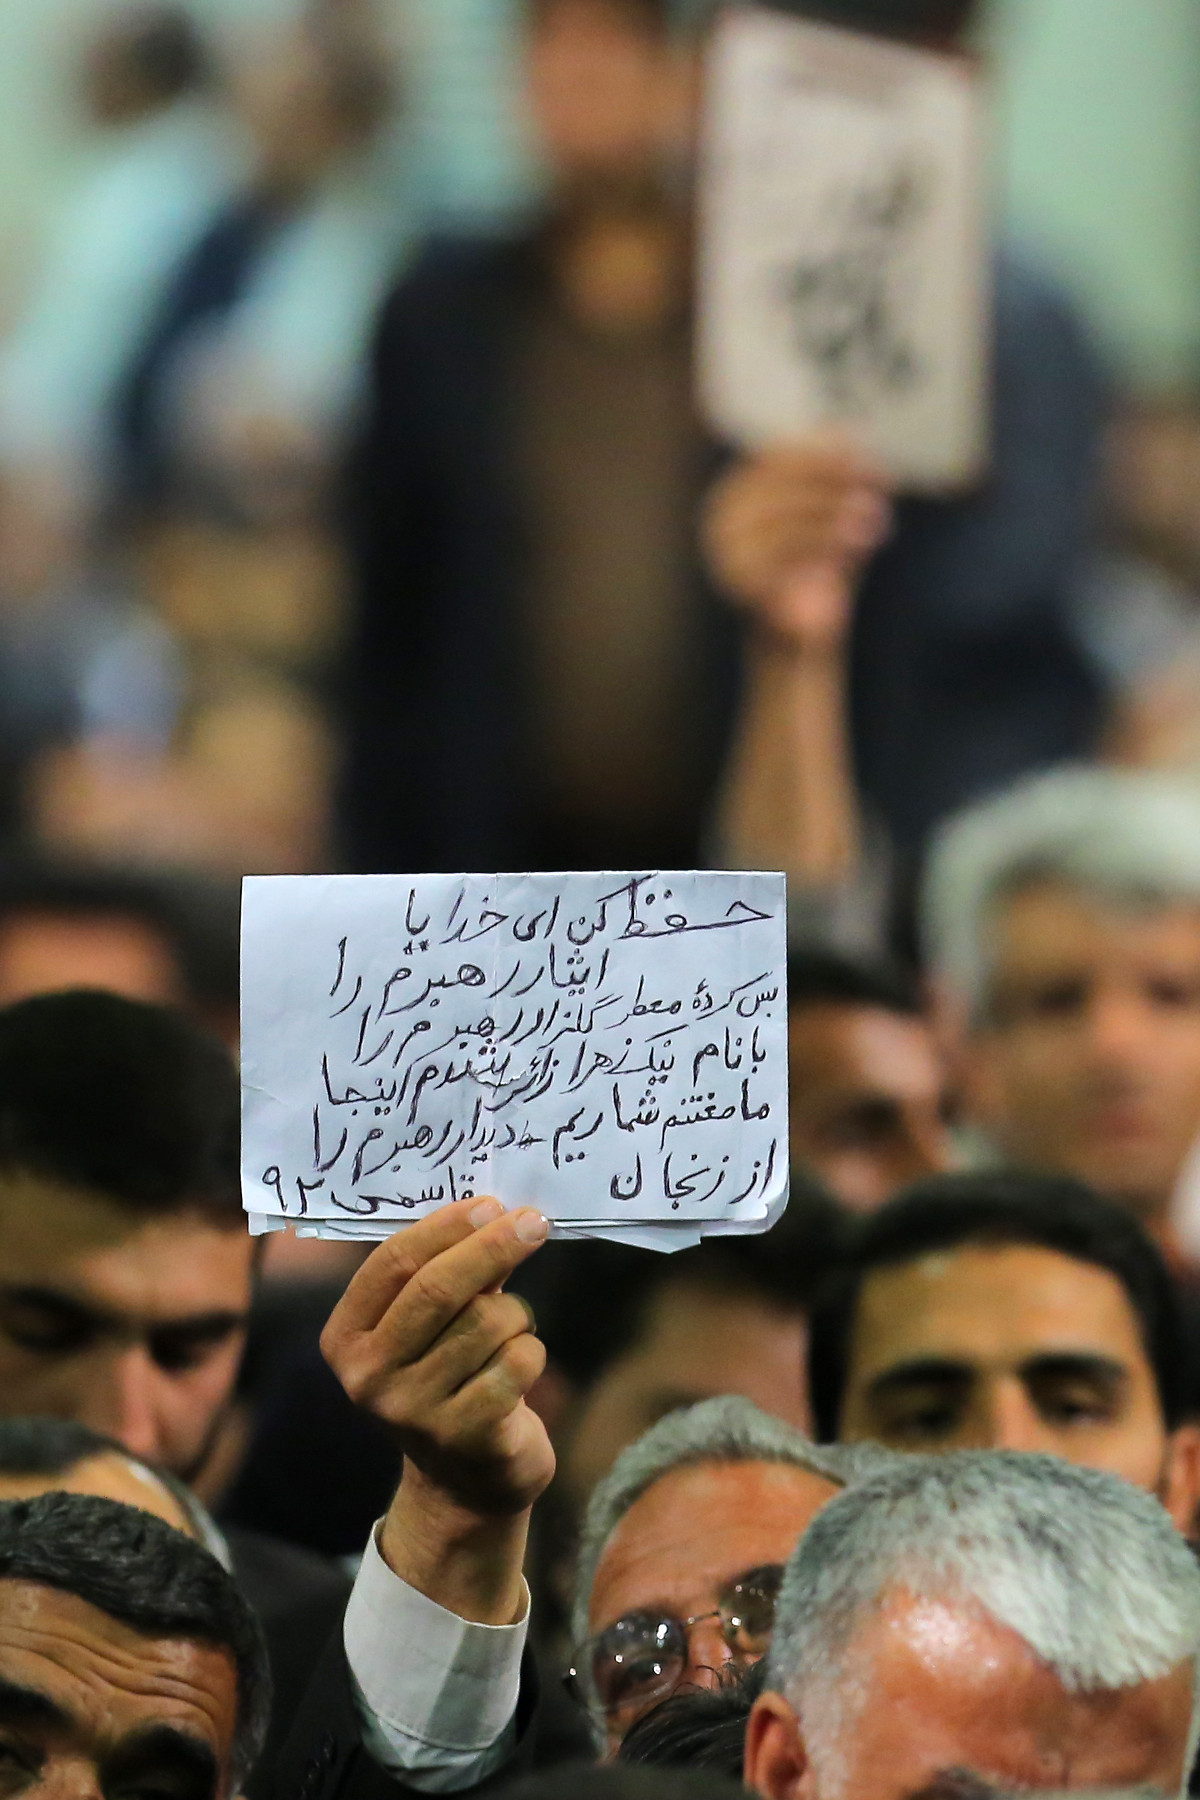 حفظ کن ای خدا یا
ایثار رهبرم را
بس کردهٔ معطر گلزار رهبرم را
با نام نیک زهرا زائر شدم اینجا
ما مغتنم شماریم دیدار رهبرم را
از زنجان قاسمی ۹۲